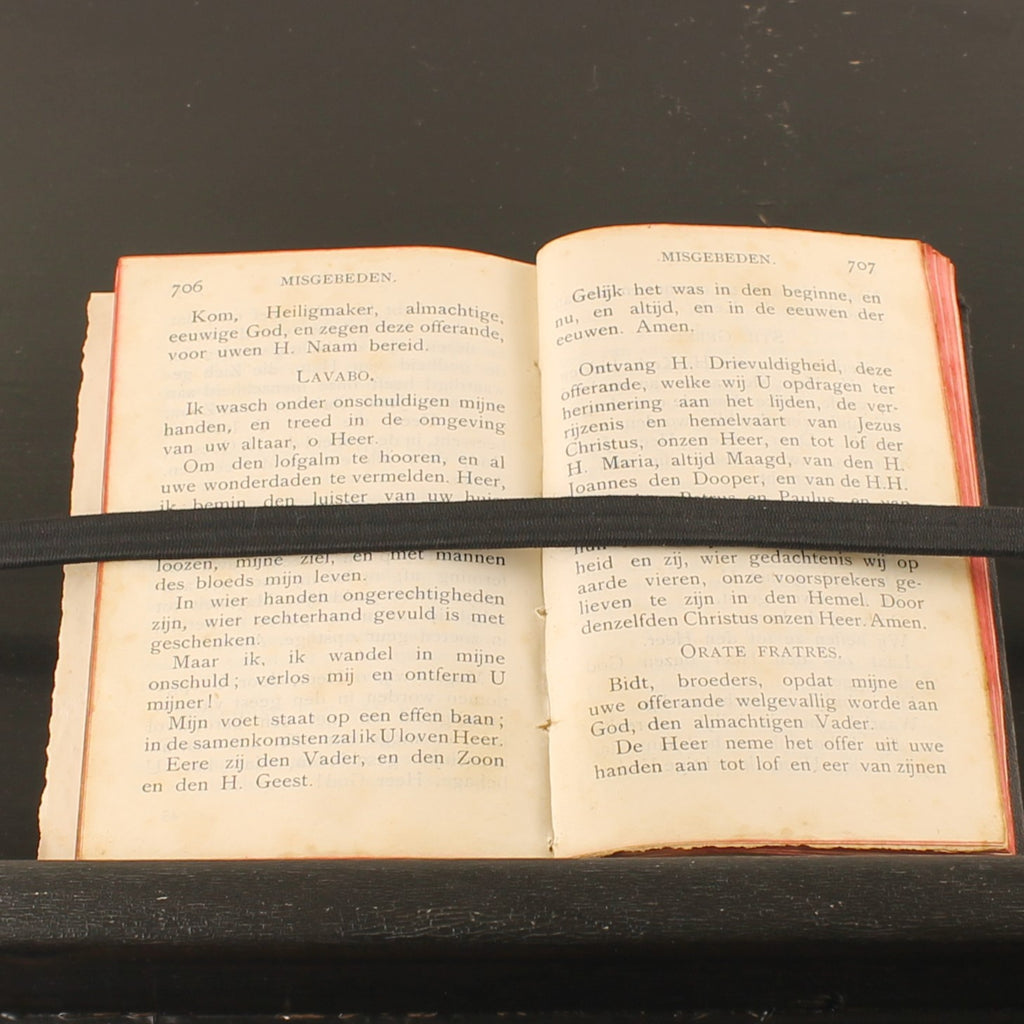 706
MISGEBEDEN.
Kom, Heiligmaker, almachtige,
eeuwige God, en zegen deze offerande,
voor uwen H. Naam bereid.
LAVABO.
Ik wasch onder onschuldigen mijne
handen, en treed in de omgeving
van uw altaar, o Heer.
Om den lofgalm te hooren, en al
uwe wonderdaden te vermelden. Heer,
ik bemin den luister van uw huis
loozen, mijne ziel, en met mannen
des bloeds mijn leven.
In wier handen ongerechtigheden
zijn, wier rechterhand gevuld is met
geschenken.
Maar ik, ik wandel in mijne
onschuld; verlos mij en ontferm U
mijner!
Mijn voet staat op een effen baan;
in de samenkomsten zal ik U loven Heer.
Eere zij den Vader, en den Zoon
en den H. Geest.
MISGEBEDEN.
707
Gelijk het was in den beginne, en
nu, en altijd, en in de eeuwen der
eeuwen. Amen.
Ontvang H. Drievuldigheid, deze
offerande, welke wij U opdragen ter
herinnering aan het lijden, de ver-
rijzenis en hemelvaart van Jezus
Christus, onzen Heer, en tot lof der
H. Maria, altijd Maagd, van den H.
Joannes den Dooper, en van de H.H.
Petrus en Paulus, en van
heid en zij, wier gedachtenis wij op
aarde vieren, onze voorsprekers ge-
lieven te zijn in den Hemel. Door
denzelfden Christus onzen Heer. Amen.
ORATE FRATRES.
Bidt, broeders, opdat mijne en
uwe offerande welgevallig worde aan
God, den almachtigen Vader.
De Heer neme het offer uit uwe
handen aan tot lof en eer van zijnen